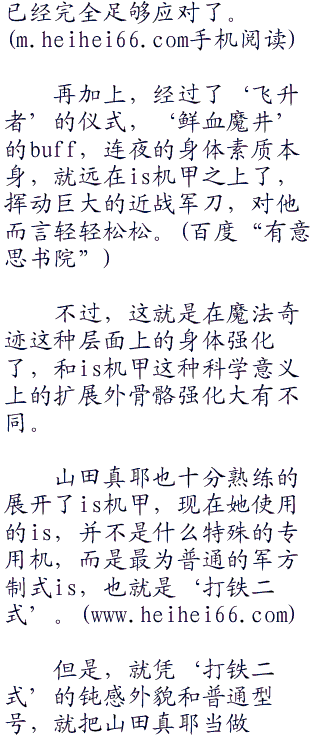 已经完全足够应对了。
(m.heihei66.com手机阅读)
再加上，经过了‘飞升
者’的仪式，‘鲜血魔井’
的buff，连夜的身体素质本
身，就远在is机甲之上了，
挥动巨大的近战军刀，对他
而言轻轻松松。(百度“有意
思书院”)
不过，这就是在魔法奇
迹这种层面上的身体强化
了，和is机甲这种科学意义
上的扩展外骨骼强化大有不
同。
山田真耶也十分熟练的
展开了is机甲，现在她使用
的is，并不是什么特殊的专
用机，而是最为普通的军方
制式is，也就是‘打铁二
式’。(www.heihei66.com)
但是，就凭‘打铁二
式’的钝感外貌和普通型
号，就把山田真耶当做